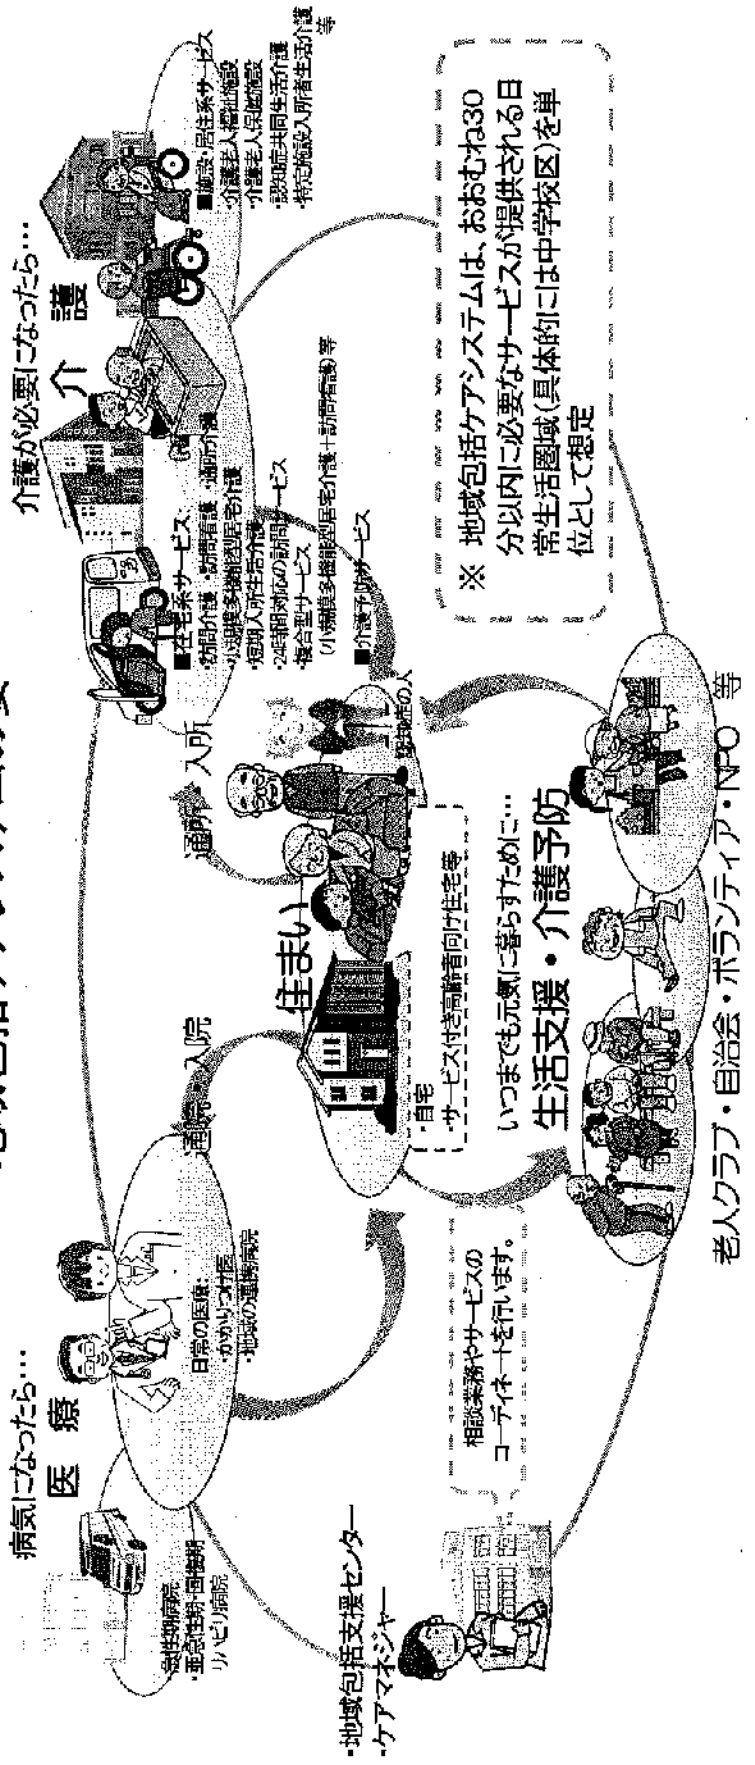 病気になったら…
医 療
・急性期病院
・亜急性期・回復期
リハビリ病院
日常の医療:
・かかりつけ医
・地域の連携病院
通院・入院
通所・入所
介護が必要になったら…
介 護
■在宅系サービス
・訪問介護 ・訪問看護 ・通所介護
・小規模多機能型居宅介護
・短期入所生活介護
・24時間対応の訪問サービス
・複合型サービス
(小規模多機能型居宅介護+訪問看護)等
■介護予防サービス
■施設・居住系サービス
・介護老人福祉施設
・介護老人保健施設
・認知症共同生活介護
・特定施設入所者生活介護
等
住まい
認知症の人
・自宅
・サービス付き高齢者向け住宅等
・地域包括支援センター
・ケアマネジャー
相談業務やサービスの
コーディネートを行います。
いつまでも元気に暮らすために…
生活支援・介護予防
老人クラブ・自治会・ボランティア・NPO 等
※ 地域包括ケアシステムは、おおむね30
分以内に必要なサービスが提供される日
常生活圏域(具体的には中学校区)を単
位として想定